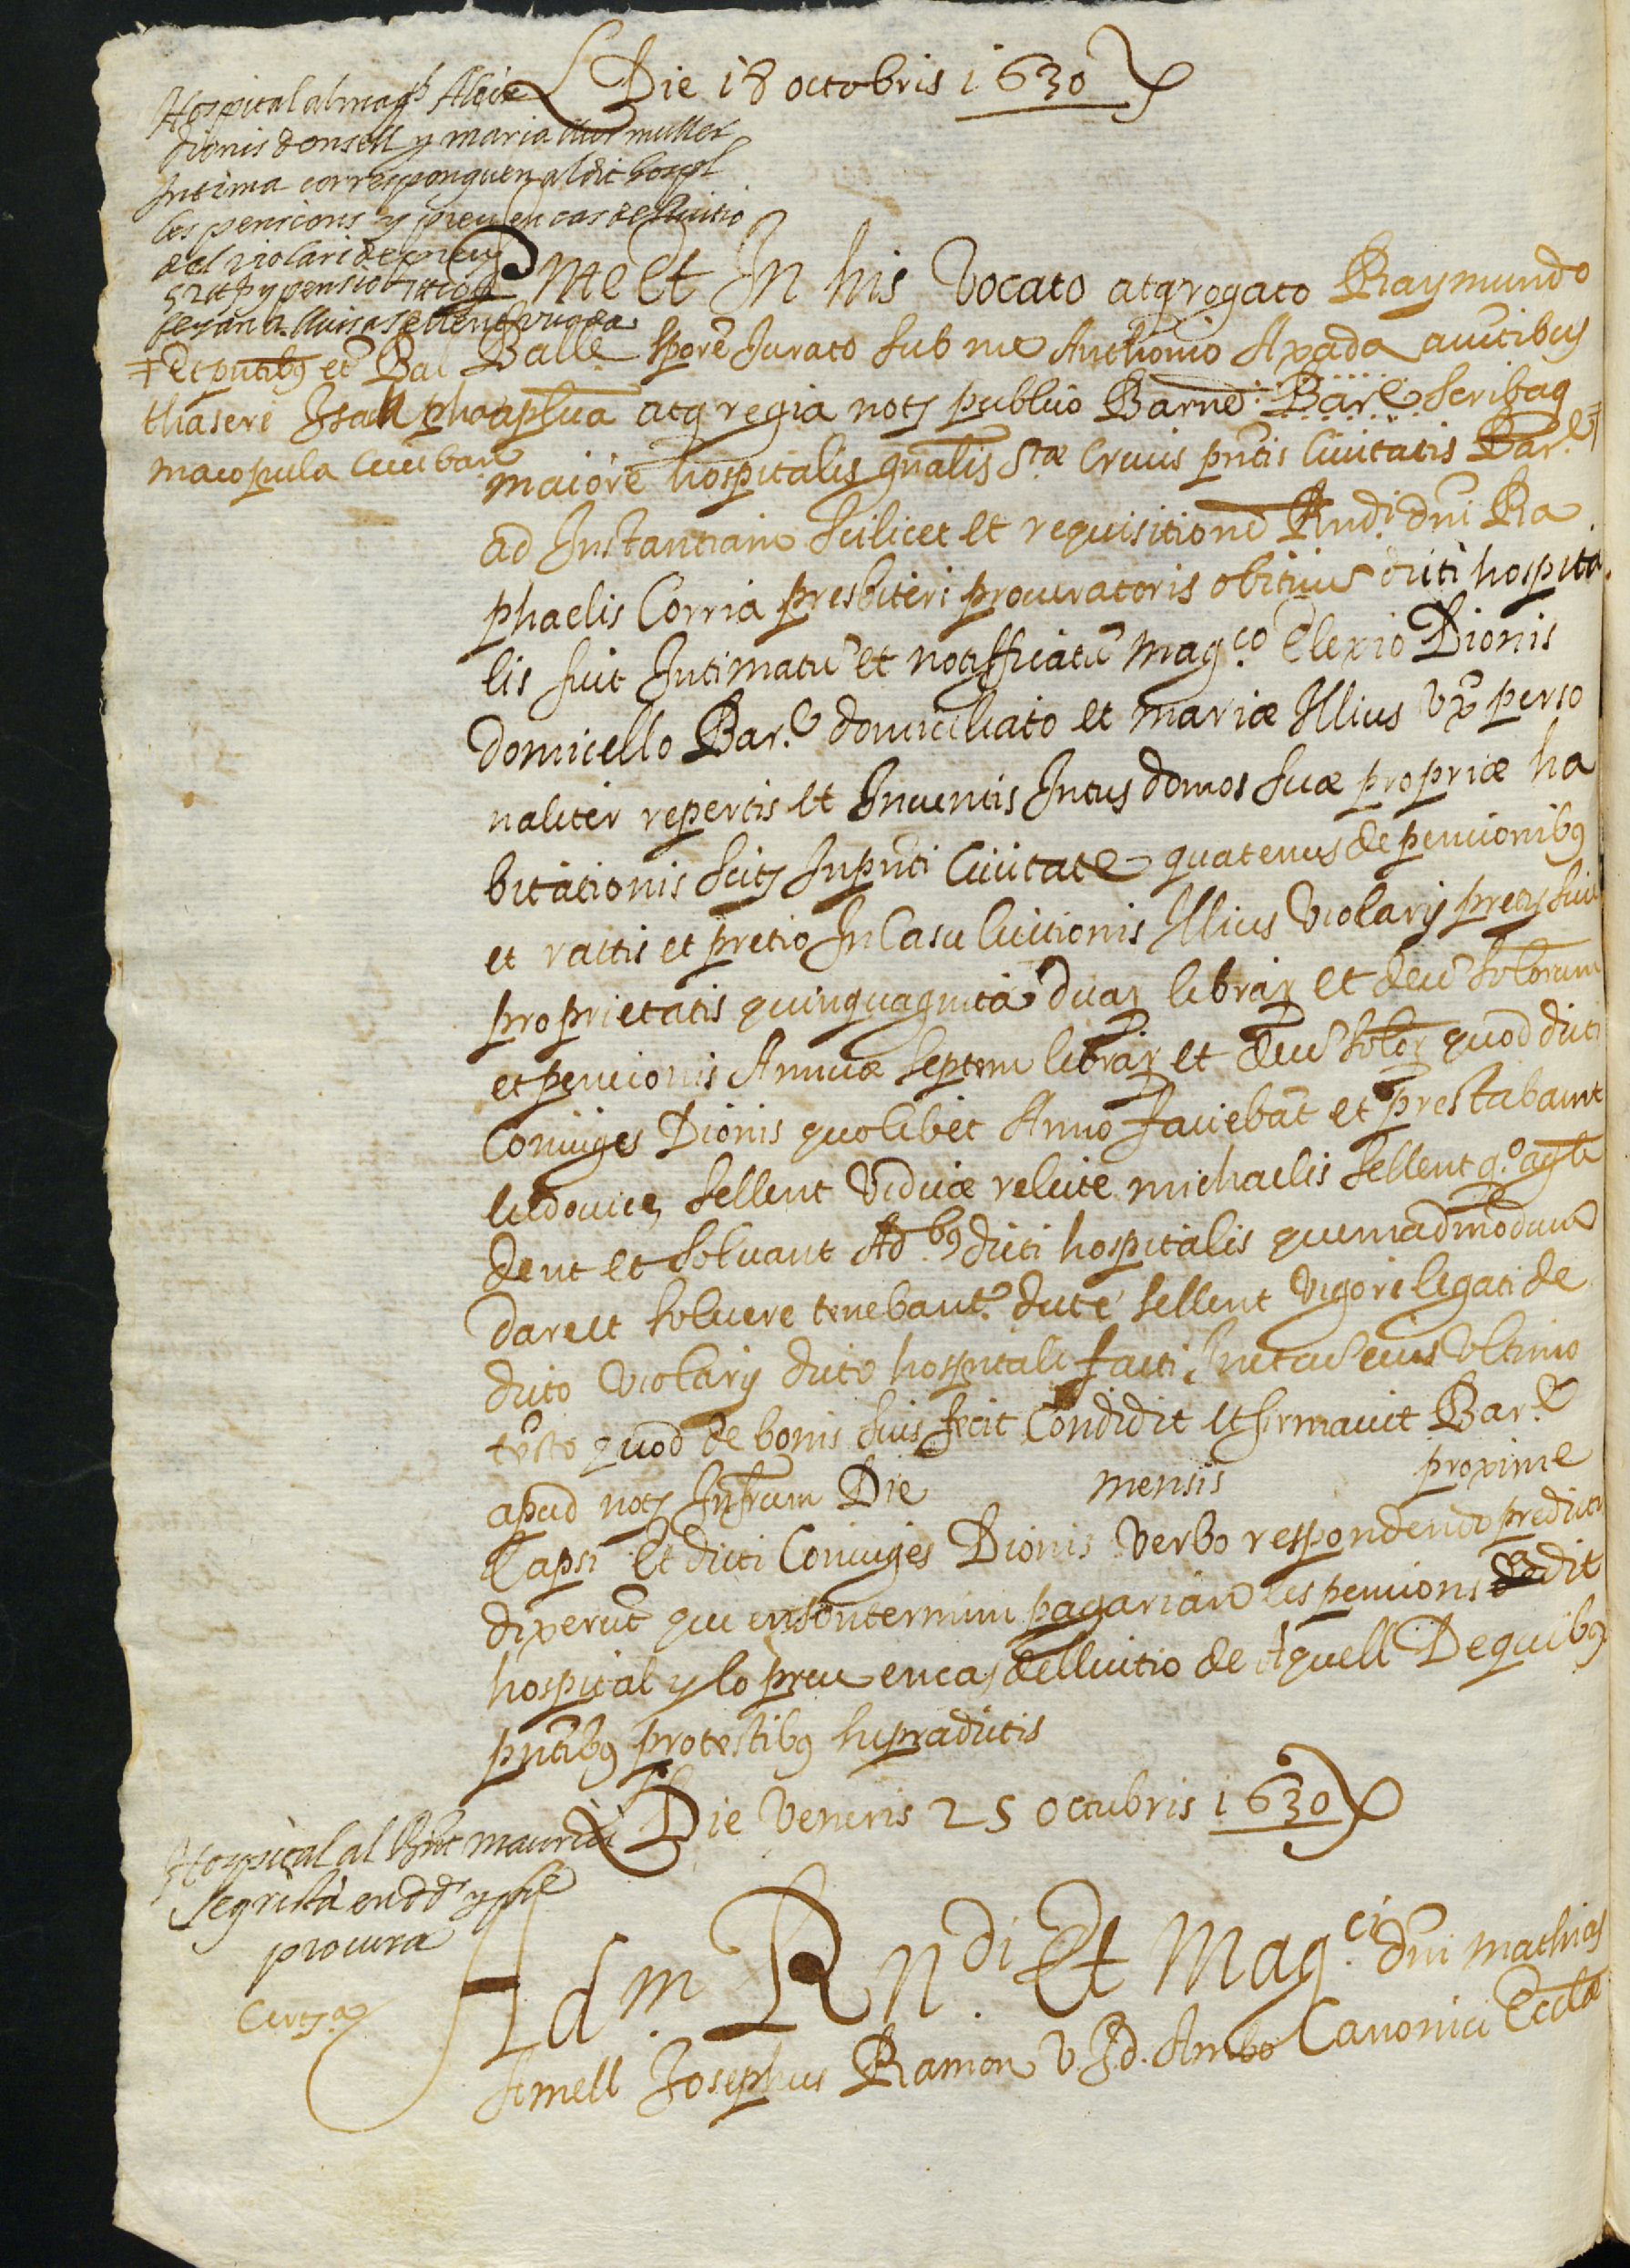 Die 18 octobris 1630
Hospital al magch Aleix
dionis donsell y maria llur muller
Intima corresponguen al dit hospl
les pensions y preu en cas de lluitio
del violari de preu
52 ℔ y pensio
feyan a lluisa sellent viuda
Me et In his Vocato atq rogato Raymundo
Batlle spore Jurato sub me Anthonio Axada auctibus
aplica atq regia noty publico Barne Bare scribaq
maiore hospitalis gnalis Stæ Crucis pntis Civitatis Bare
‡ Et pntibus et Bal
thasere Isach pha
macopula cive bare
ad Instantiam scilicet et requisitione Rndi dni Ra
phaelis Corria presbiteri procuratoris obitius dicti hospita
lis fuit Intimatu et notifficatu magco Elexio Dionis
domicello Bare domiciliato et mariæ Illius vx perso
naliter repertis et Inventis Intus domos suæ propriæ ha
bitationis scity In pnti Civitate quatenus de pencionibus
et rattis et pretio In Casu luitionis Illius Violarij precy sive
proprietatis quinquaginta duar librar et decu solorum
et pencionis Annuæ septem librar et decu solor quod dicti
Coniuges Dionis quolibet Anno faciebat et prestabant
ludovice sellent Viduæ relicte michaelis sellent qo agle
dent et solvant Adbus dicti hospitalis quemadmodum
dare et solvere tenebant dicte sellent vigore legati de
dicto violarij dicto hospitali facti In eius Ultimo
testo quod de bonis suis fecit Condidit et firmavit Bare
apud noty Infrum Die mensis proxime
lapsi Et dicti Coniuges Dionis Verbo respondendo predicti
dixerut que en son termini pagarian les pencions de dit
hospital y lo preu en cas de lluitio de Aquell De quibus
pntibus pro testibus supradictis
Die Veneris 25 octubris 1630
Hospital al Rnt maurici
segrista en dd y pre
procura
Certja
Adm. Rndi Et Magci dni mathias
Amell Josephus Ramon V. J. d. Ambo Canonici Eccla